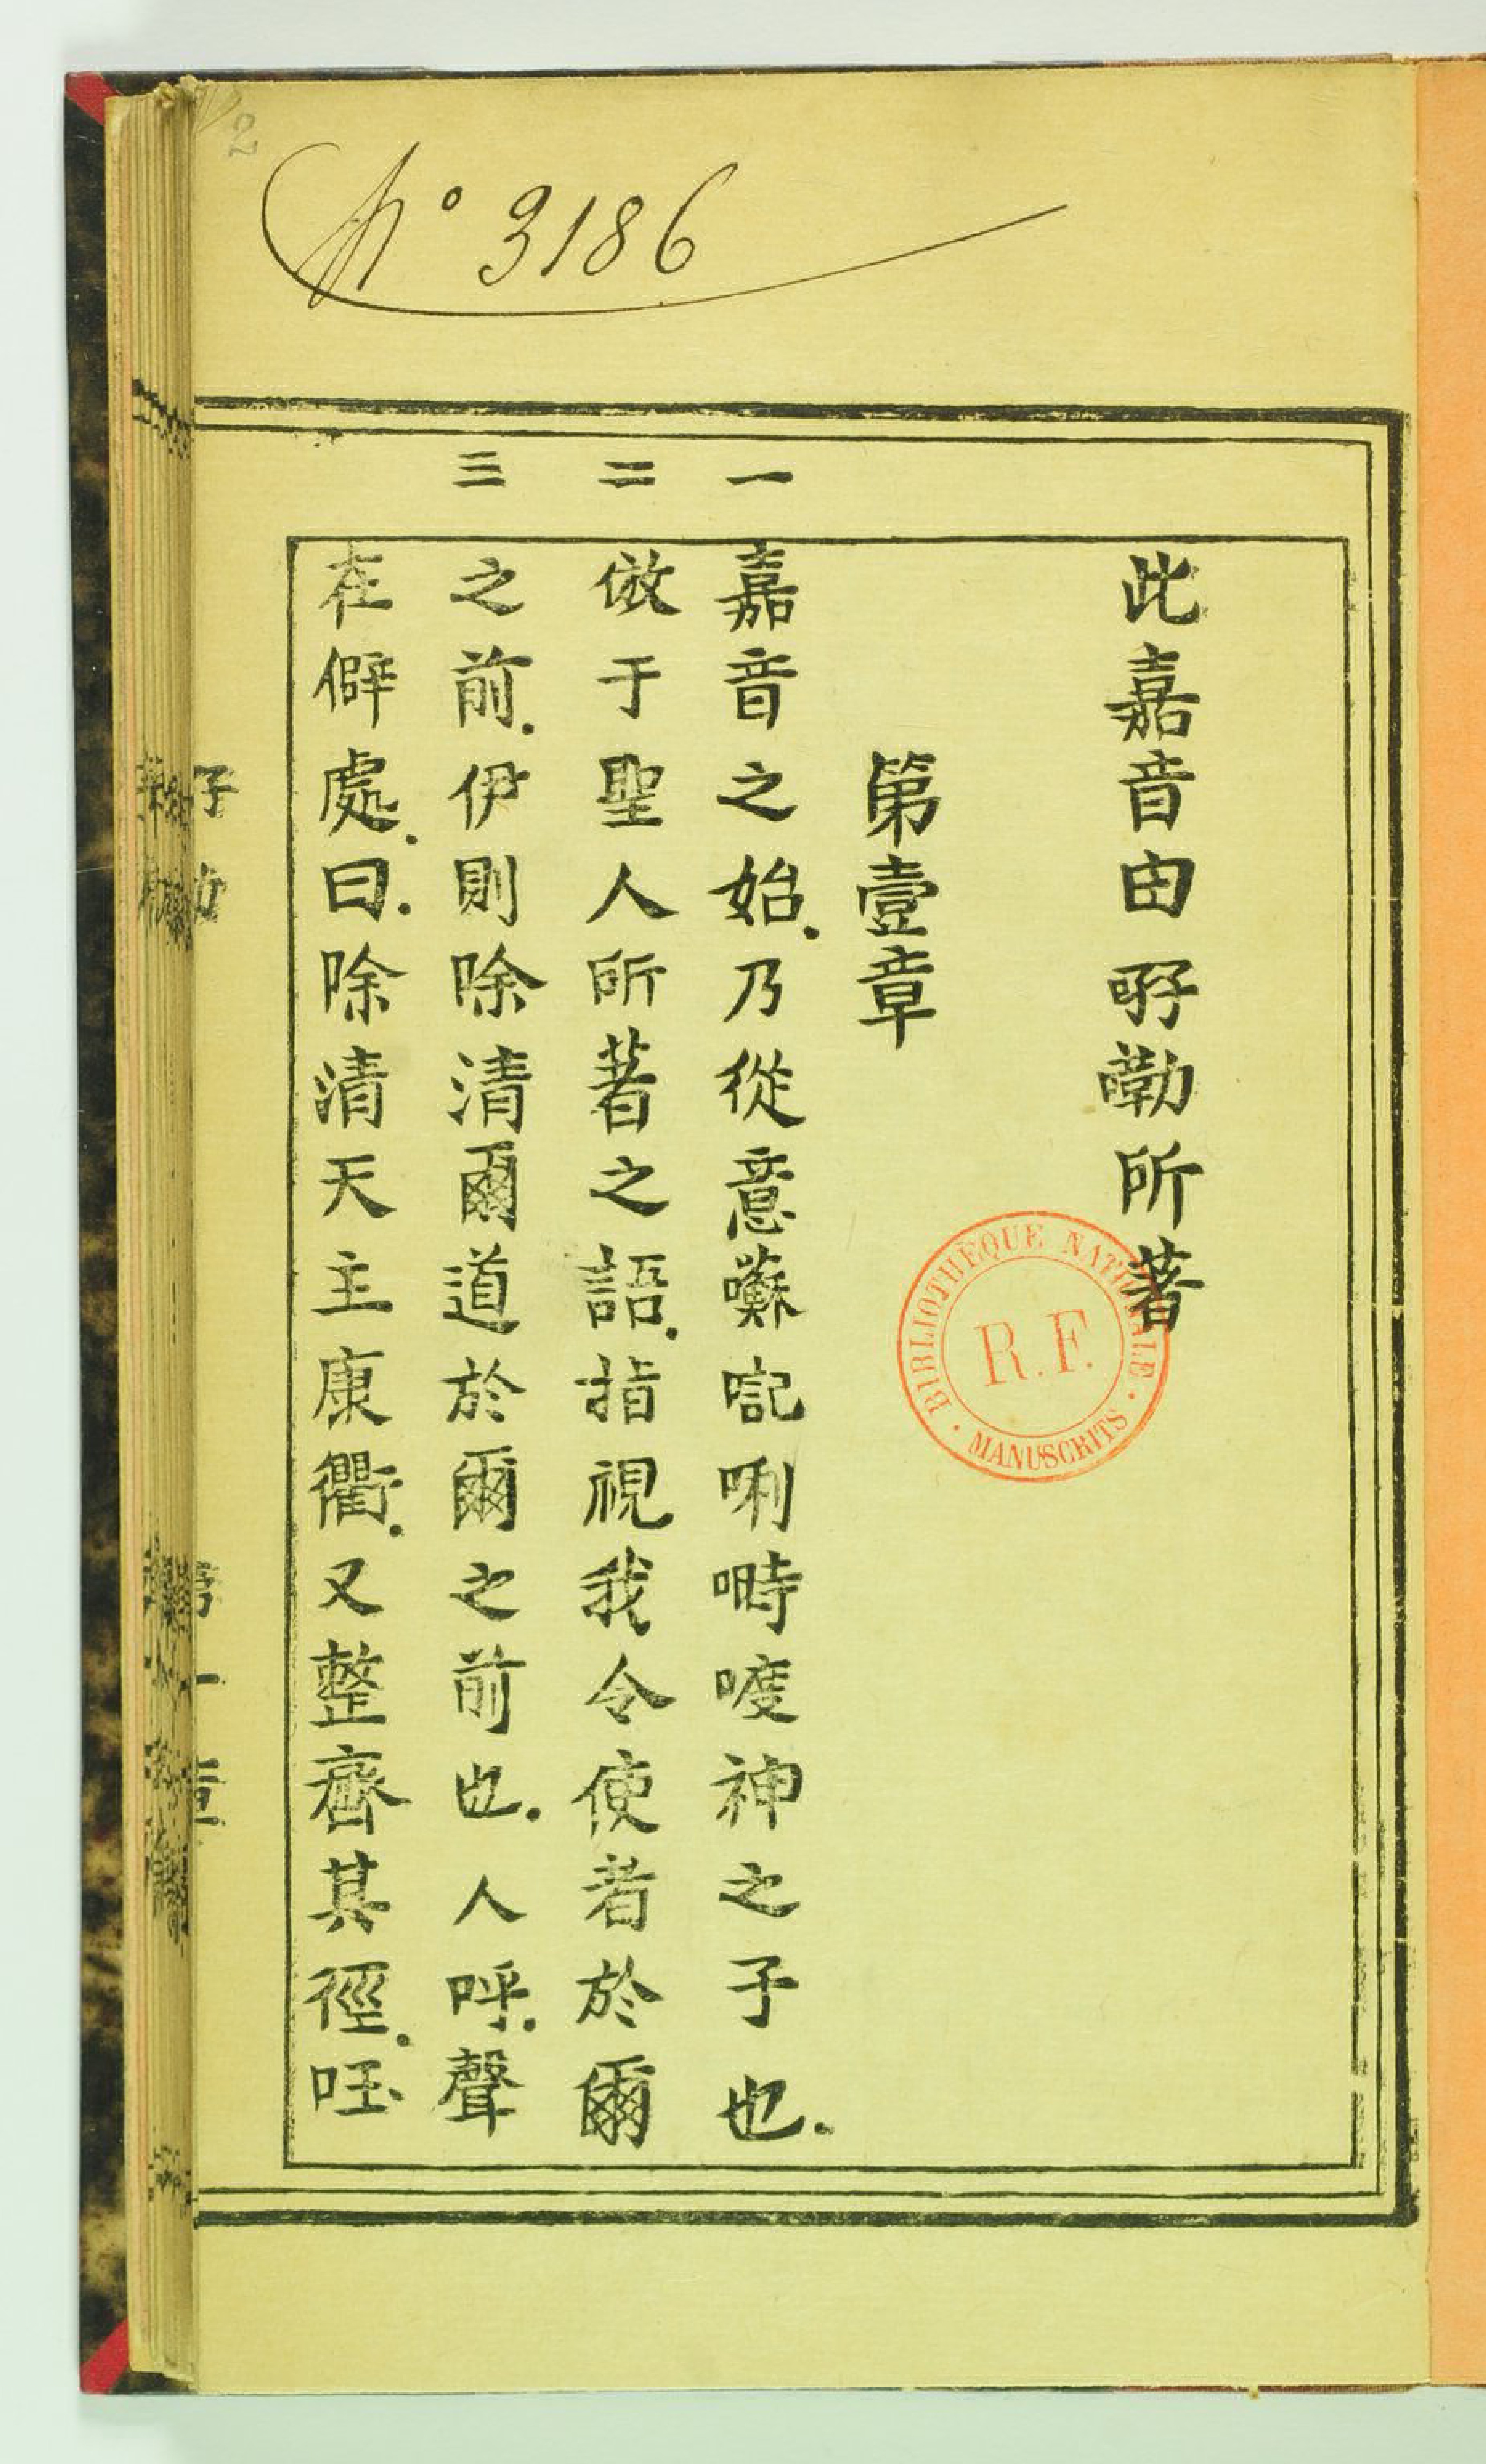 2
Nº 3186
此嘉音由𠰻嘞所著
第壹章
一 嘉音之始.乃從意囌㖕唎㗭喥神之子也.
二 倣于聖人所著之語.指視我令使者於爾
三 之前.伊則除清爾道於爾之前也.人呼.聲
在僻處.曰.除清天主康衢.又整齊其徑.
BIBLIOTHÈQUE NATIONALE
R.F.
MANUSCRITS